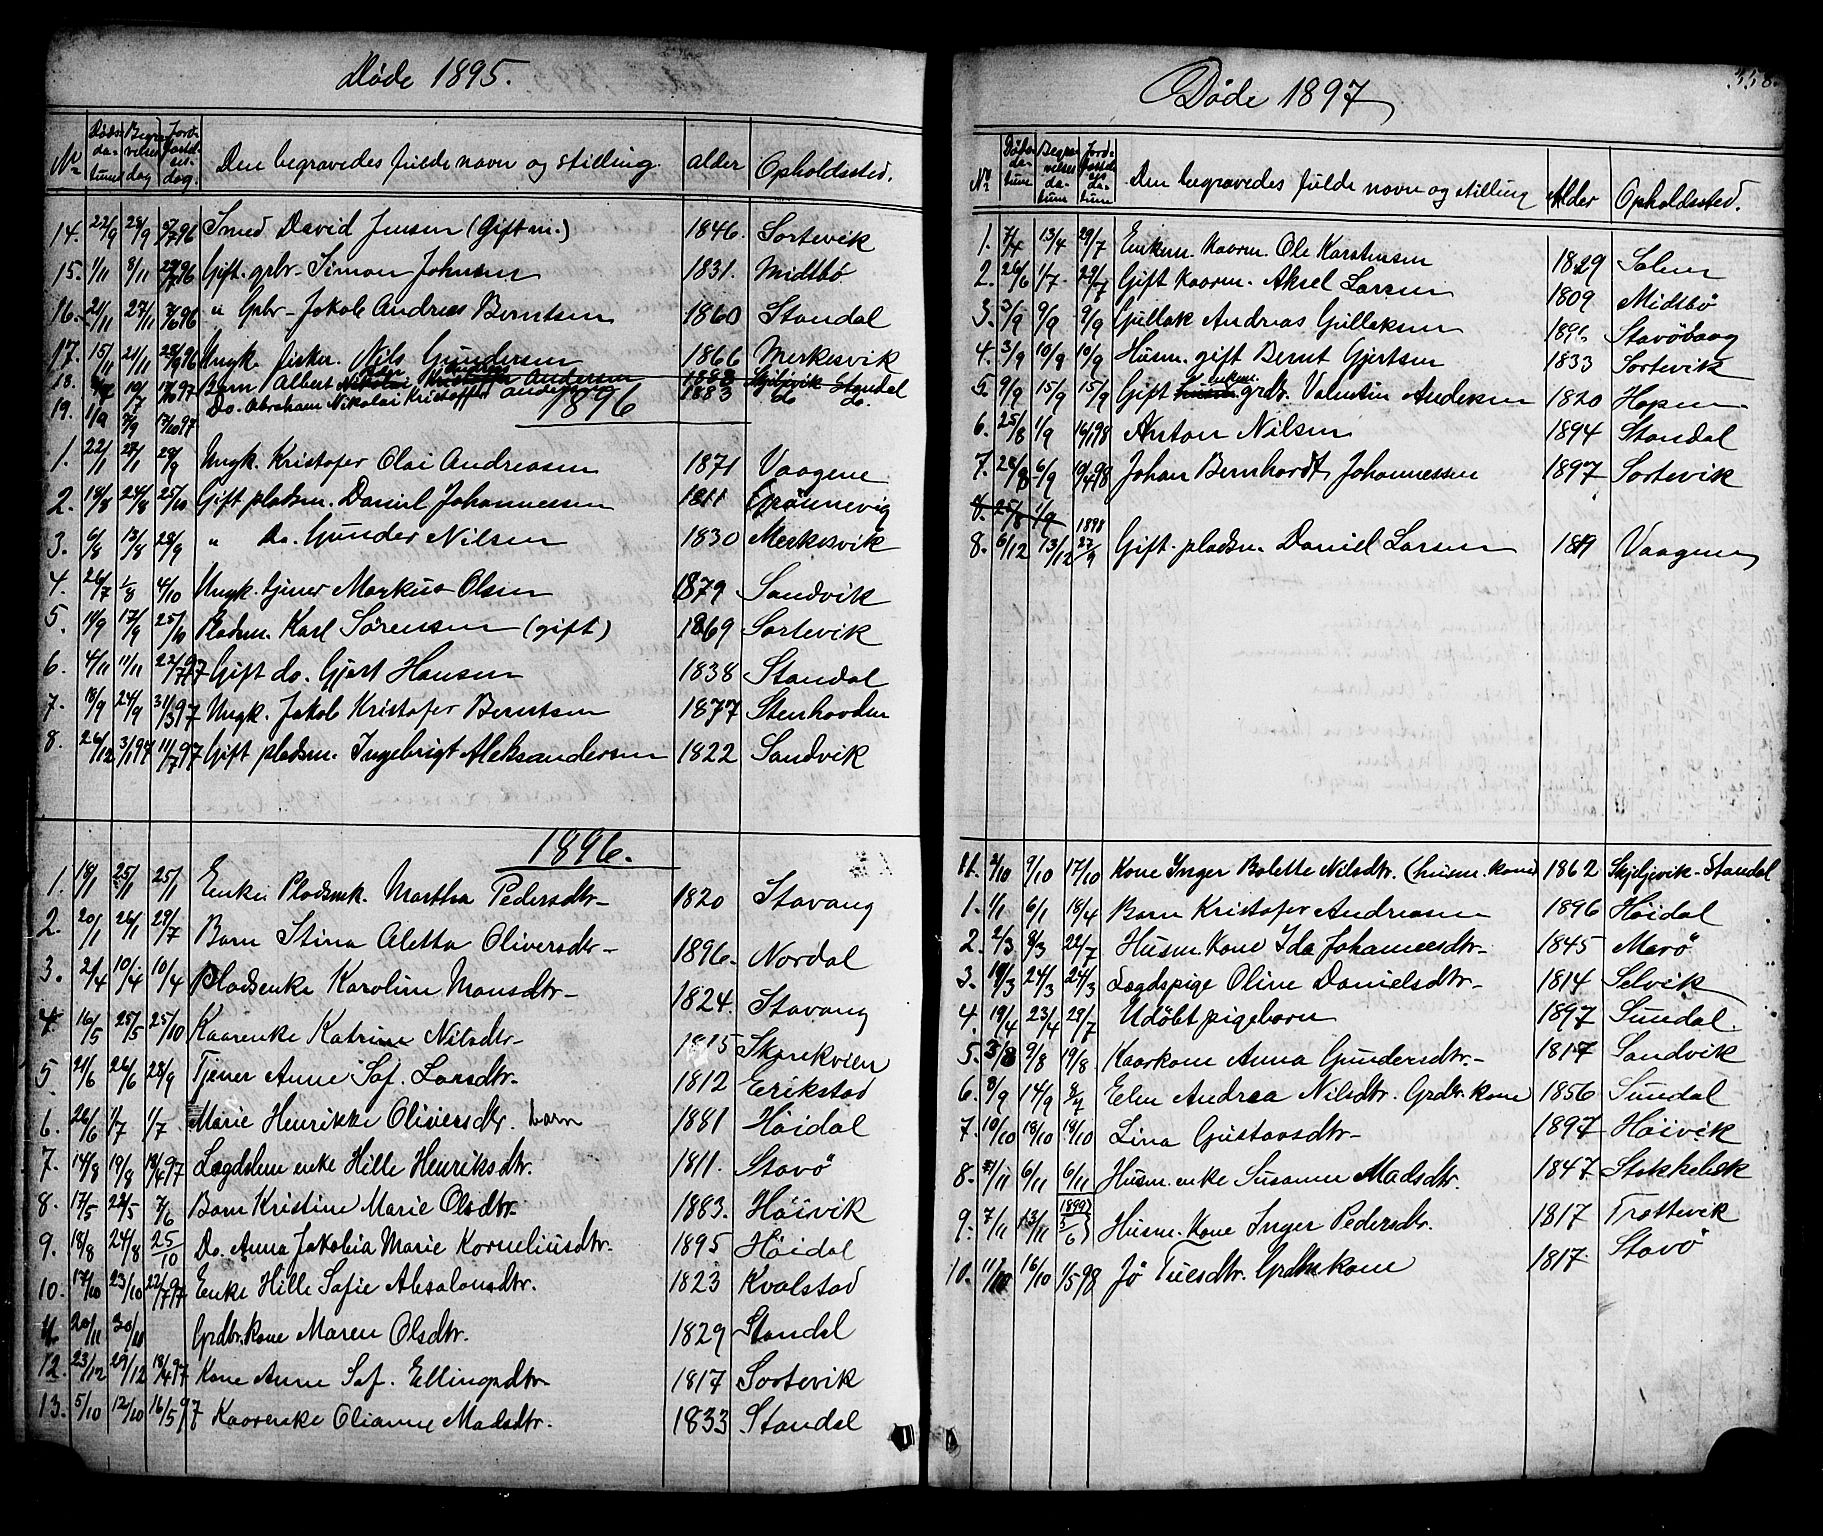 Døde 1895.
No Døds-datum Begravelses dag Jordfæstelses-dag. Den begravedes fulde navn og stilling. alder Opholdssted.
14. 22/9 28/9 Smed David Jensen (Gift m.) 1846. Sortevik
15. 1/11 8/11 Gift. grbr. Simon Johnsen 1831. Midtbö
16. 21/11 27/11 7/6 96 " Grbr. Jakob Andreas Berntsen 1860 Standal
17. 15/11 21/11 28/9 96 Ungk. fisker. Nils Gundersen 1866 Merkesvik
18. 10/7 Barn Albert 1883 Skjeljevik Standal
19. 1/9 7/9 17/10 97 Do. Abraham Nikolai Kristoffer Andersen 1883 do do.
1896
1. 22/1 28/1 28/9 Ungk. Kristofer Olai Andreasen 1871 Vaagene
2. 18/8 24/8 25/10 Gift pladsm. Daniel Johannessen 1811 Grönnevig
3. 6/8 13/8 28/9 " Do. Gunder Nilsen 1830 Merkesvik
4. 26/7 1/8 4/10 Ungk. tjener Markus Olsen 1879 Sandvik
5. 11/9 17/9 25/10 Pladsm. Karl Sörensen (gift) 1869 Sortevik
6. 4/11 11/11 22/7 97 Gift do. Gjert Hansen 1838 Standal
7. 18/9 24/9 31/3 97 Ungk. Jakob Kristofer Berntsen 1877 Stenhovden
8. 26/12 3/1 97 11/7 97 Gift pladsm. Ingebrigt Aleksandersen 1822 Sandvik
1896.
1. 18/1 25/1 25/1 Enke Pladsmk. Martha Pedersdtr. 1820 Stavang
2. 20/1 26/1 29/7 Barn Stina Aletta Oliversdtr. 1896. Nordal
3. 2/4 10/4 10/4 Pladsenke Karoline Monsdtr. 1824. Stavang
4. 16/5 25/5 25/10 Kaarenke Katrine Nilsdtr. 1815 Skorekvien
5 21/6 26/6 28/9 Tjener Anne Sof. Larsdtr. 1812 Erikstad
6. 26/6 1/7 1/7 Marie Henrikke Oliversdtr. barn 1881 Höidal
7. 14/8 19/8 18/6 97 Lægdslem enke Hille Henriksdtr. 1811. Stavö
8. 17/5 24/5 7/6 Barn Kristine Marie Olsdtr. 1883. Höivik
9. 18/8 24/8 25/10 Do. Anna Jakobia Marie Korneliusdtr. 1895 Höidal
10. 17/10 23/10 22/7 97 Enke Hille Sofie Absalonsdtr. 1823 Kvalstad
11. 20/11 30/11 Grdbr. kone Maren Olsdtr. 1829 Standal
12. 23/12 29/12 18/4 97 Kone Anne Sof. Ellingsdtr. 1817 Sortevik
13. 5/10 12/10 16/5 97 Kaarenke Olianne Madsdtr. 1833 Standal
338.
Døde 1897
No Døds-datum Begravelses datum Jordfæstelses datum Den begravedes fulde navn og stilling Alder Opholdssted.
1. 7/4 13/4 29/7 Enkem. kaarm. Ole Karstensen 1829 Solem
2. 26/6 1/7 29/7 Gift kaarm. Aksel Larsen 1809 Midtbö
3. 3/9 9/9 9/9 Gullak Andreas Gullaksen Stavöbaag
4. 3/9 10/9 10/9 Husm. gift Bernt Gjertsen 1833 Sortevik
5. 9/9 15/9 15/9 Gift enkem. grdbr. Valentin Andersen 1820 Hopen
6. 25/8 1/9 16/1 98 Anton Nilsen 1894 Standal
7. 28/8 6/9 10/4 98 Johan Bernhardt Johannessen 1897 Sortevik
8. 25/8 1/9
8. 6/12 13/12 1898 27/9 Gift. pladsm. Daniel Larsen 1819 Vaagene
11. 2/10 9/10 17/10 Kone Inger Bolette Nilsdtr. (husm. kone) 1862 Skjeljevik-Standal
1. 1/1 6/1 18/4 Barn Kristofer Andreasen 1896 Höidal
2. 2/3 8/3 22/7 Husm. Kone Ida Johannesdtr. 1845 Marö
3. 19/3 24/3 24/3 Lægdspige Oline Danielsdtr. 1814 Selvik
4. 19/4 23/4 29/7 Udöbt pigebarn 1897 Sundal.
5. 3/8 9/8 19/8 Kaarkone Anna Gundersdtr. 1817 Sandvik
6. 8/9 14/9 Elen Andrea Nilsdtr. Grdbr. kone 1856 Sundal
7. 10/10 18/10 18/10 Lina Gustavsdtr. 1897 Höivik
8. 6/11 6/11 Husm. enke Susanne Madsdtr. 1847 Stokkebæk
9. 7/11 13/11 1899 5/6 Husm. Kone Inger Pedersdtr. 1817 Trottevik
10. 11/10 16/10 1/5 98 Jö Tuesdtr. Grdbr kone 1817. Stavö